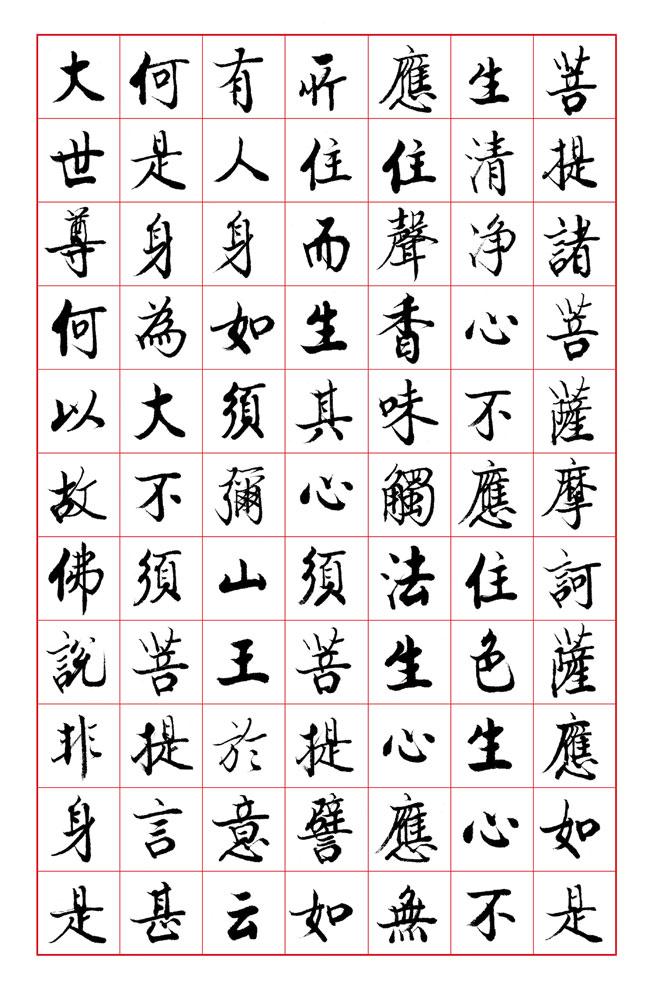 菩提諸菩薩摩訶薩應如是
生清净心不應住色生心不
應住聲香味觸法生心應無
所住而生其心須菩提譬如
有人身如須彌山王於意云
何是身為大不須菩提言甚
大世尊何以故佛說非身是